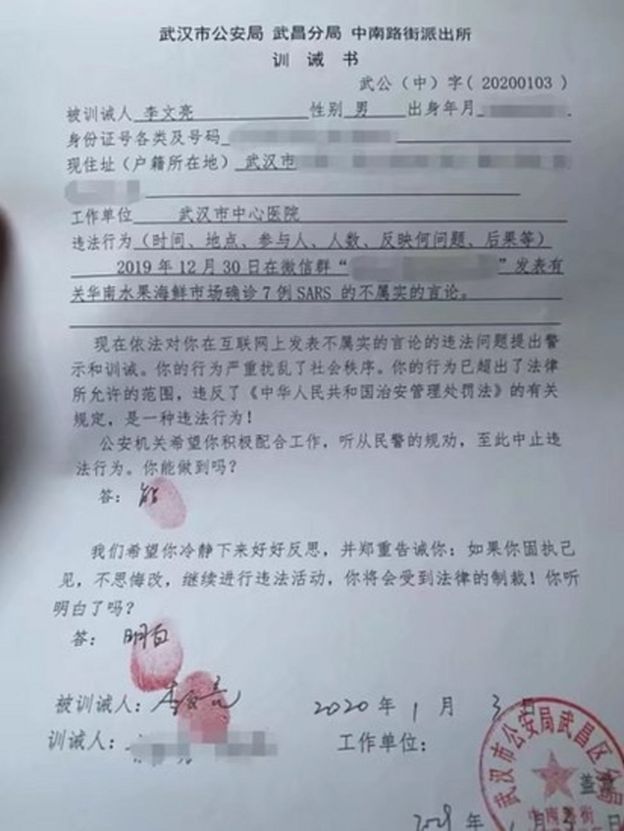 武汉市公安局 武昌分局 中南路街派出所
训 诫 书
武公（中）字（20200103）
被训诫人 李文亮 性别 男 出身年月
身份证号各类及号码
现住址（户籍所在地） 武汉市
工作单位 武汉市中心医院
违法行为（时间、地点、参与人、人数、反映何问题、后果等）
2019年12月30日在微信群“ ”发表有
关华南水果海鲜市场确诊7例SARS的不属实的言论。
现在依法对你在互联网上发表不属实的言论的违法问题提出警
示和训诫。你的行为严重扰乱了社会秩序。你的行为已超出了法律
所允许的范围，违反了《中华人民共和国治安管理处罚法》的有关
规定，是一种违法行为！
公安机关希望你积极配合工作，听从民警的规劝，至此中止违
法行为。你能做到吗？
答：能
我们希望你冷静下来好好反思，并郑重告诫你：如果你固执己
见，不思悔改，继续进行违法活动，你将会受到法律的制裁！你听
明白了吗？
答：明白
被训诫人：李文亮 2020年1月3日
训诫人： 工作单位：
武汉市公安局武昌区分
中南路街
盖章